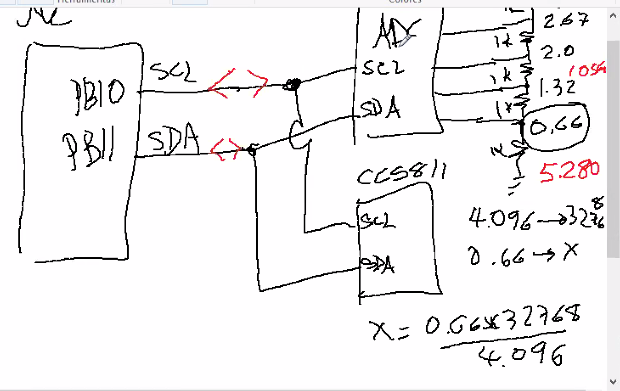 Herramientas
Colores
PB10
SCL
PB11
SDA
AD
SCL
SDA
2.67
1K
2.0
1K
1.32
1K
0.66
1K
5.280
CCS811
SCL
SDA
4.096 → 32768
0.66 → X
X = 0.66x32768
4.096